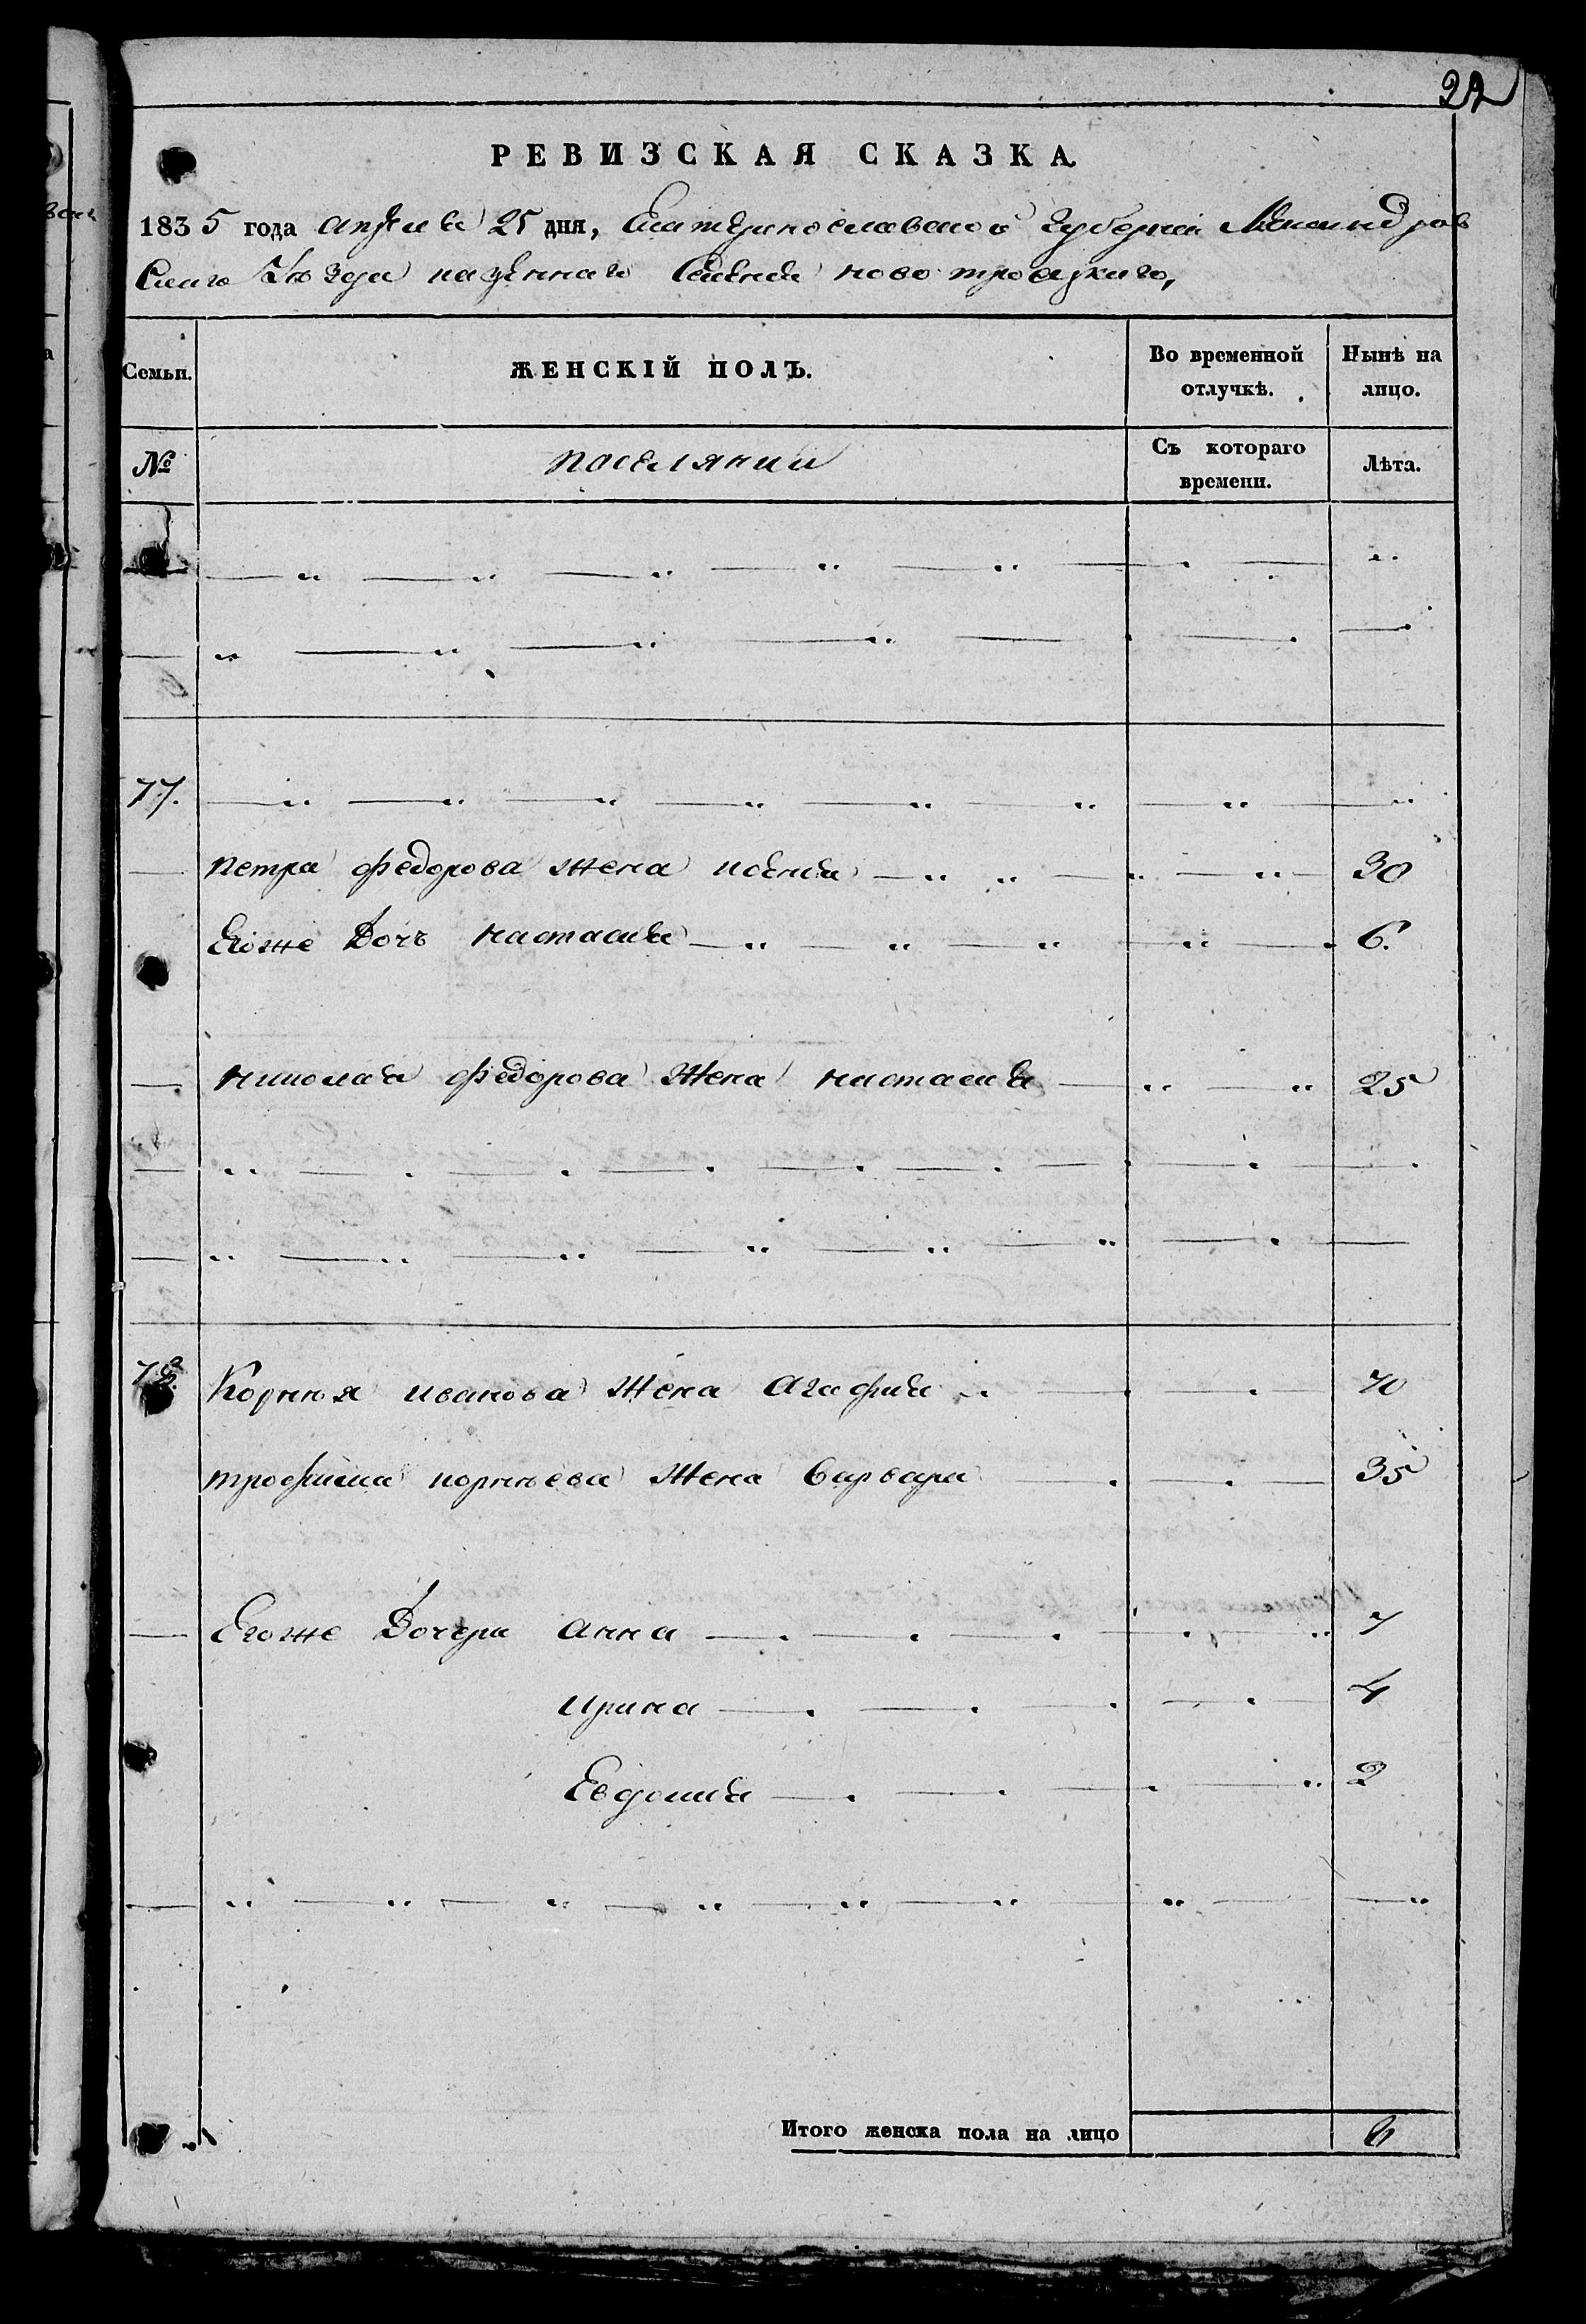 РЕВИЗСКАЯ СКАЗКА.
1835 года апреля 25 дня, Екатеринославской Губернии Александров
Скаго Уѣзда казеннаго Селения новотроицкаго,
Семьи. ЖЕНСКІЙ ПОЛЪ. Во временной отлучкѣ. Нынѣ на лицо.
№ поселянии Съ котораго времени. Лѣта.
77.
петра федорова жена 30
Егоже Дочь настасия 6.
николая федорова жена настасия 25
78. Корнѣя иванова жена агафия 70
трофима корнѣева жена варвара 35
Егоже Дочери анна 7
ирина 4
Евдокия 2
Итого женска пола на лицо